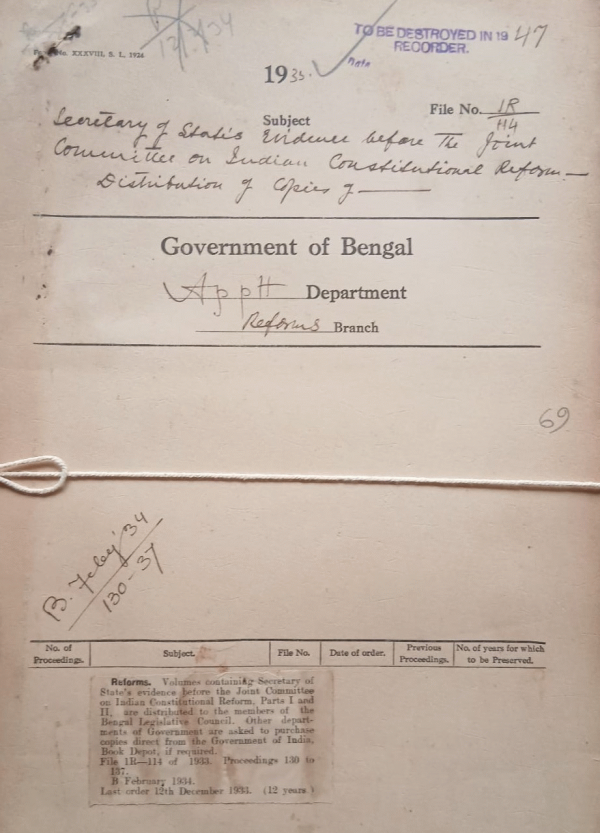 No. XXXVIII, S. L., 1924
B
12/2/34
TO BE DESTROYED IN 1947
RECORDER.
Date
1933.
File No. 1R/114
Subject
Secretary of State's Evidence before The Joint
Committee on Indian Constitutional Reform —
Distribution of Copies of —
Government of Bengal
Appt Department
Reforms Branch
69
B. Feby '34
130-37
No. of Proceedings. Subject. File No. Date of order. Previous Proceedings. No. of years for which to be Preserved.
Reforms. Volumes containing Secretary of
State's evidence before the Joint Committee
on Indian Constitutional Reform, Parts I and
II, are distributed to the members of the
Bengal Legislative Council. Other depart-
ments of Government are asked to purchase
copies direct from the Government of India,
Book Depot, if required.
File 1R—114 of 1933. Proceedings 130 to
137.
B February 1934.
Last order 12th December 1933. (12 years.)